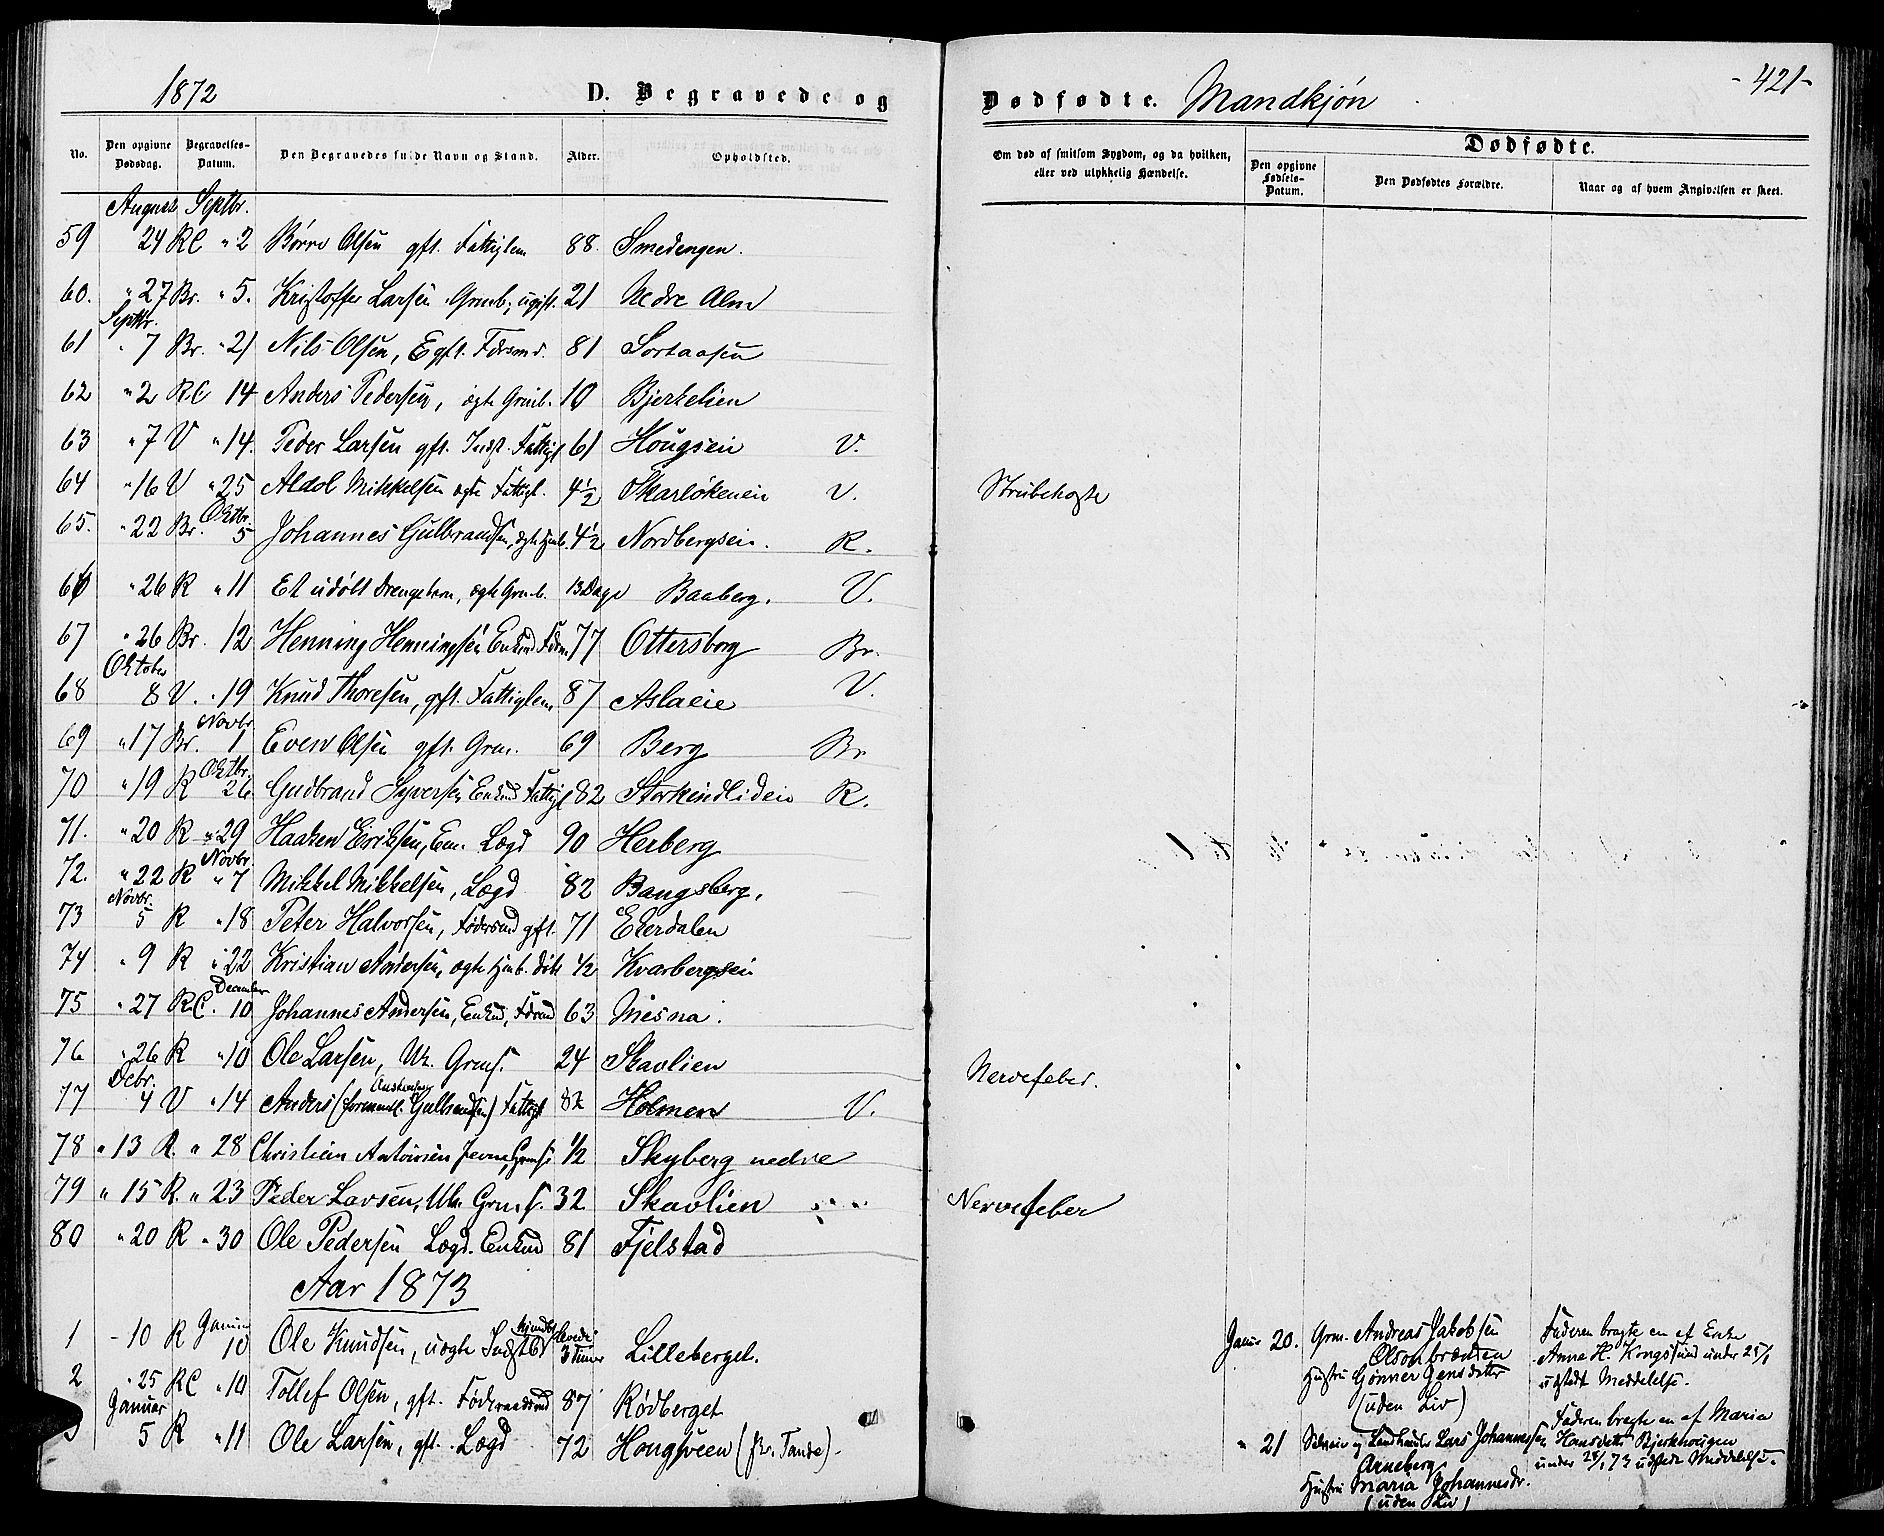 1872
D. Begravede og
Dødfødte. Mandkjøn
-421-
No.
Den opgivne Dødsdag.
Begravelses-Datum.
Den Begravedes fulde Navn og Stand.
Alder.
Opholdsted.
Om død af smitsom Sygdom, og da hvilken, eller ved ulykkelig Hændelse.
Dødfødte.
Den opgivne Fødsels-Datum.
Den Dødfødtes Forældre.
Naar og af hvem Angivelsen er skeet.
August Septbr.
59 24 RC " 2 Børre Olsen gft. Fattiglem 88. Smedengen.
60. " 27 Br. " 5. Kristoffer Larsen Grmb, ugift. 21 Nedre Alm
Septbr.
61 " 7 Br. " 21 Nils Olsen, E gft. Fdrsmd. 81 Sortaasen
62 " 2 RC 14 Anders Pedersen, ægte Grmb. 10 Bjerkelien
63 " 7 V " 14. Peder Larsen gft. Indst. Fattigl 61 Hougseie V.
64 " 16 V " 25 Adol Mikkelsen ægte Fattigl. 4½ Skarløkeneie V. Strubehoste
Oktbr.
65. " 22 Br. 5 Johannes Gulbrandsen, ægte Hmb. 4½ Nordbergseie. R.
66 " 26 R " 11 Et udøbt Drengebarn, ægte Grmb. 13 Dage Baaberg. V.
67 " 26 Br. 12 Henning Henningsen Enkmd Fdrm 77 Ottersborg Br.
Oktober
68 8 V. " 19 Knud Thoresen, gft. Fattiglem 87 Aslaeie V.
Novbr
69 " 17 Br. 1 Even Olsen gft. Grm. 69 Berg Br
Oktbr.
70 " 19 R 26 Gudbrand Syversen Enkmd Fattigl 82 Storkindlideie R.
71. " 20 R " 29 Haaken Eriksen, Em. Lægd 90 Herberg
Novbr.
72. " 22 R " 7 Mikkel Mikkelsen, Lægd 82 Bangsberg.
Novbr.
73 5 R " 18 Peter Halvorsen, Føderaad gft. 71 Ekerdalen
74 " 9 R " 22 Kristian Andersen, ægte Hmb. døbt ½ Kvarbergseie
December
75 " 27 RC. 10 Johannes Andersen, Enkmd, Fdrmd 63 Mesna.
76 " 26 R " 10 Ole Larsen, Uk. Grms. 24 Skavlien Nervefeber.
Debr.
77 4 V " 14 Anders (formentl. Gulbrandsen) Fattigl 82 Holmen V.
78 " 13 R. " 28 Christian Antonsen Jevne, Grmss ½ Skyberg nedre
79 " 15 R. " 23 Peder Larsen, Uk. Grms. 32 Skavlien Nervefeber
80 " 20 R " 30 Ole Pedersen Lægd. Enkmd 81 Fjelstad
Aar 1873
Januar
1 - 10 R 10 Ole Knudsen, uægte levede 3 Timer Lilleberget.
2 " 25 RC " 10 Tollef Olsen, gft. Føderaadsmd 87 Rødberget
Januar
3 5 R " 11 Ole Larsen, gft. Lægd 72 Hougsveen (fr. Tande)-
Januar 20. Grm. Andreas Jakobsen
Olsonbrænden
Hustru Gønner Jensdatter
(uden Liv)
Faderen bragte en af Enke
Anna H. Kongssund under 25/1
udstedt Meddelelse.
" 21 Lars Johannessen
Arneberg
Hustru Maria Johannesdr.
(uden Liv)
Faderen bragte en af Maria
Hansdatter Bjerkhougen
under 25/1 73 udstedt Meddelelse.